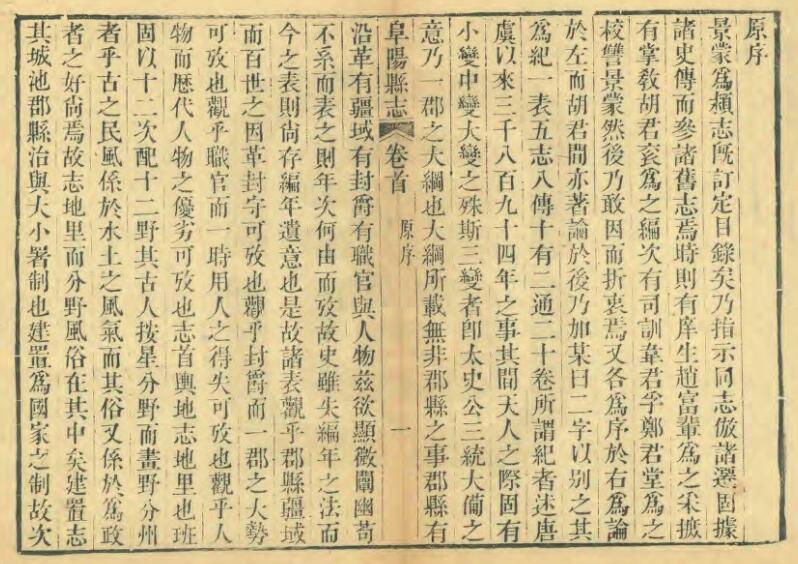 原序
景蒙爲潁志既訂定目錄矣乃指示同志倣諸遷固據
諸史傳而參諸舊志焉時則有庠生趙富輩爲之采摭
有掌敎胡君袤爲之編次有司訓韋君孚鄭君堂爲之
校讐景蒙然後乃敢因而折衷焉又各爲序於右爲論
於左而胡君間亦著論於後乃加某曰二字以別之其
爲紀一表五志八傳十有二通二十卷所謂紀者述唐
虞以來三千八百九十四年之事其間天人之際固有
小變中變大變之殊斯三變者卽太史公三統大備之
意乃一郡之大綱也大綱所載無非郡縣之事郡縣有
阜陽縣志 卷首 原序 一
沿革有疆域有封爵有職官與人物茲欲顯微闡幽苟
不系而表之則年次何由而攷故史雖失編年之法而
今之表則尙存編年遺意也是故諸表觀乎郡縣疆域
而百世之因革封守可攷也觀乎封爵而一郡之大勢
可攷也觀乎職官而一時用人之得失可攷也觀乎人
物而歷代人物之優劣可攷也志首輿地志地里也班
固以十二次配十二野其古人按星分野而畫野分州
者乎古之民風係於水土之風氣而其俗又係於爲政
者之好尙焉故志地里而分野風俗在其中矣建置志
其城池郡縣治與大小署制也建置爲國家之制故次